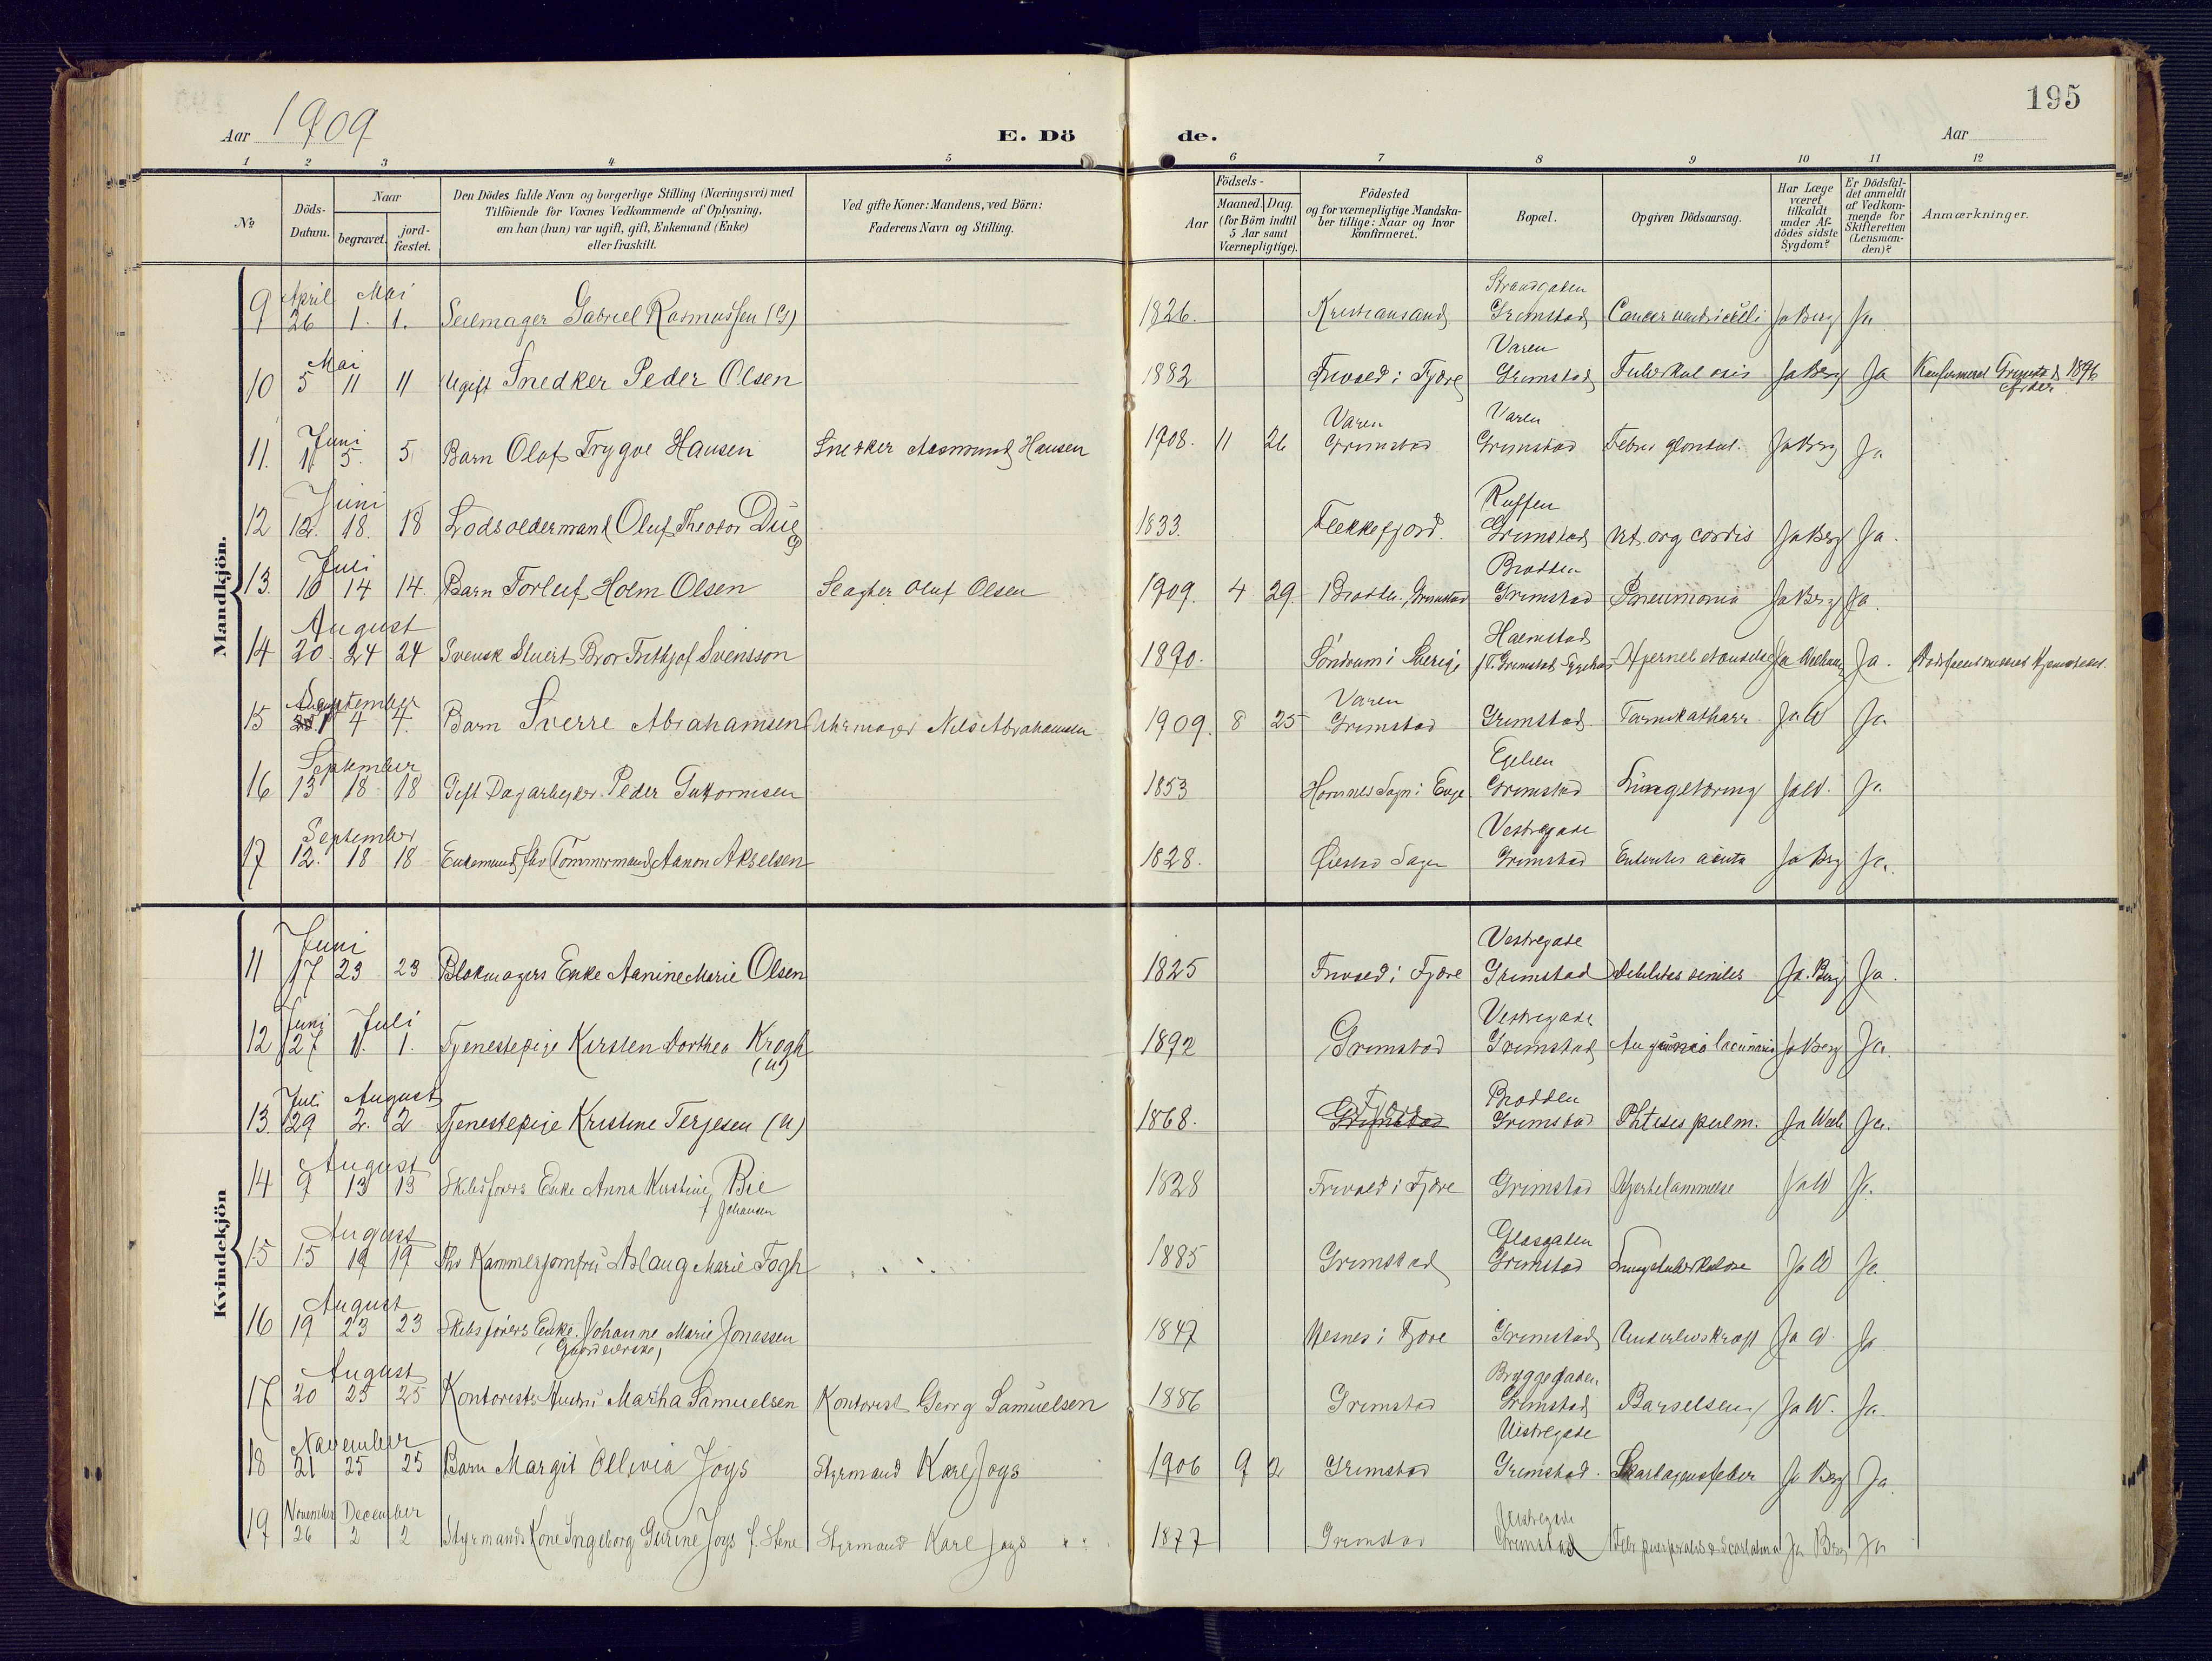 195
Aar 1909
E. Dö
de.
Aar
1 2 3 4 5 6 7 8 9 10 11 12
No
Döds-Datum.
Naar
begravet.
jord-fæstet.
Den Dödes fulde Navn og borgerlige Stilling (Næringsvei) med
Tilföiende for Voxnes Vedkommende af Oplysning,
om han (hun) var ugift, gift, Enkemand (Enke)
eller fraskilt.
Ved gifte Koner: Mandens, ved Börn:
Faderens Navn og Stilling.
Födsels-
Aar
Maaned. Dag.
(for Börn indtil
5 Aar samt
Værnepligtige).
Födested
og for værnepligtige Mandska-
ber tillige: Naar og hvor
konfirmeret.
Bopæl.
Opgiven Dödsaarsag.
Har Læge
været
tilkaldt
under Af-
dödes sidste
Sygdom?
Er Dödsfal-
det anmeldt
af Vedkom-
mende for
Skifteretten
(Lensman-
den)?
Anmærkninger.
Mandkjön.
April Mai Strandgaden
9 26 1. 1. Seilmager Gabriel Rasmussen (G) 1826. Kristiansand Grimstad Cancer ventriculi Ja Berg Ja
Mai Varen
10 5 11 11 Ugift Snedker Peder Olsen 1882 Frivold i Fjære Grimstad Tuberkulosis Ja Berg Ja Konfirmeret Grimstad 1896
Juni Varen Varen
11. 1 5. 5 Barn Olaf Trygve Hansen Snedker Aasmund Hansen 1908. 11 26 Grimstad Grimstad Febris Ja Berg Ja
Juni
12 12. 18. 18 Lodsoldermand Oluf Theodor Due 1833. Flekkefjord. Grimstad Vit. org cordis Ja Berg Ja.
G
Juli Brodden
13. 10 14 14. Barn Torleif Holm Olsen Slagter Oluf Olsen 1909. 4 29. Brodden, Grimstad Grimstad Pneumonia Ja Berg Ja.
August Halmstad
14 20. 24 24 Svensk Bror Fritkjof Svensson 1890. Söndrum i Sverige Grimstad Ja Ja.
September Varen
15 1 4 4. Barn Sverre Abrahamsen Uhrmager Nils Abrahamsen 1909. 8 25 Grimstad Grimstad Tarmkatharr Ja W Ja
September
16 13 18 18 Gift Dagarbeider Peder Guttormsen 1853 Hornnes Sogn i Evje Grimstad Lungetæring Ja W. Ja
September Vestregade
17 12. 18 18 Enkemand, fhv Tömmermand Aanon Akselsen 1828. Øiestad Sogn Grimstad Enteritis acuta Ja Berg Ja.
Kvindekjön
Juni Vestregade
11 17 23 23 Blokmagers Enke Aanine Marie Olsen 1825 Frivold i Fjære Grimstad Debilitas senilis Ja. Berg Ja.
Juni Juli Vestregade
12 27 1. 1. Tjenestepige Kirsten Dorthea Krogh 1892 Grimstad Grimstad Ja Berg Ja
(u)
Juli August Fjære Brodden
13. 29 2. 2 Tjenestepige Kristine Terjesen (u) 1868. Grimstad Grimstad Phtisis pulm. Ja Ja.
August
14 9 13 13 Skibsförers Enke Anna Kirstine Bie 1828 Frivold i Fjære Grimstad Hjertelammelse Ja W Ja.
f. Johansen
August Glasgaden
15 15 19 19 fhv Kammerjomfru Aslaug Marie Fogh 1885 Grimstad Grimstad Lungetuberkulose Ja W Ja
August
16 19 23 23 Skibsförers Enke Johanne Marie Jonassen 1847 Vesnes i Fjære Grimstad Underlivskræft Ja W. Ja
August Bryggegaden
17 20 25 25 Kontorists Hustru Martha Samuelsen Kontorist Georg Samuelsen 1886 Grimstad Grimstad Barselseng Ja W. Ja.
November Vestregade
18 21 25 25 Barn Margit Ollivia Joys Styrmand Karl Joys 1906 9 2 Grimstad Grimstad. Skarlagensfeber Ja Berg Ja.
November December Vestregade
19 26 2 2 Styrmands Kone Ingeborg Gurine Joys f. Stene Styrmand Karl Joys 1877 Grimstad Grimstad Febr. puerperalis & Scarlatina Ja Berg Ja